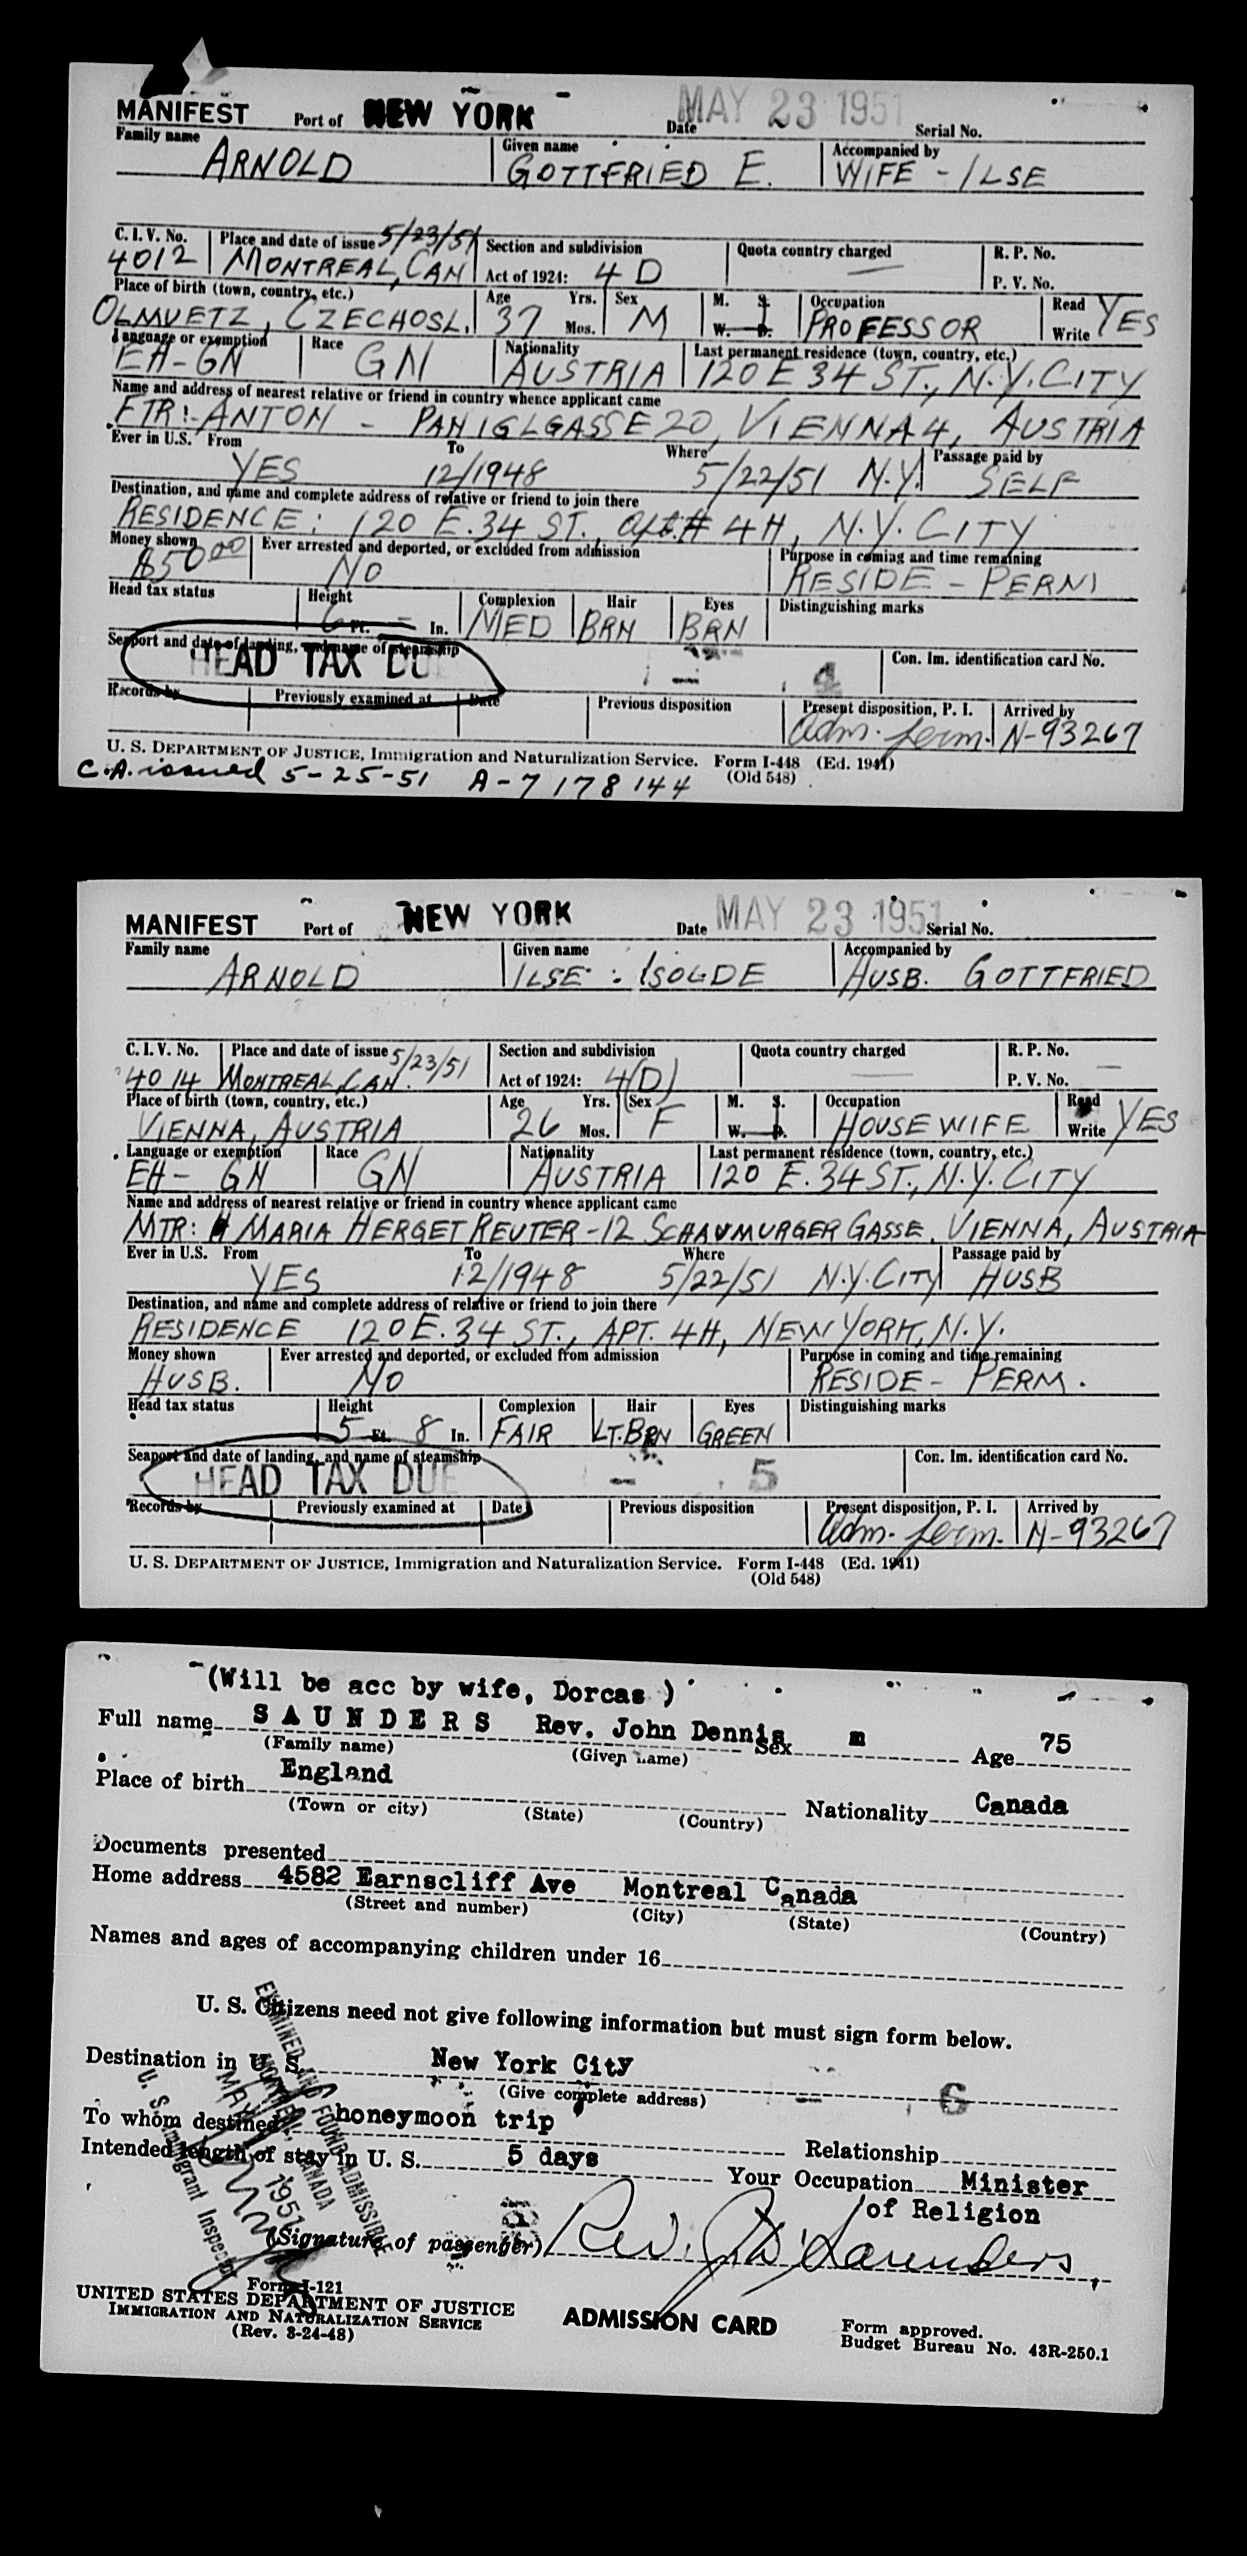 MANIFEST Port of NEW YORK Date MAY 23 1951 Serial No.
Family name Given name Accompanied by
ARNOLD GOTTFRIED E. WIFE - ILSE
C. I. V. No. Place and date of issue 5/23/51 Section and subdivision Quota country charged R. P. No.
4012 MONTREAL, CAN Act of 1924: 4 D — P. V. No.
Place of birth (town, country, etc.) Age Yrs. Sex M. S. Occupation Read
OLMUETZ, CZECHOSL. 37 Mos. M W. D. PROFESSOR Write YES
Language or exemption Race Nationality Last permanent residence (town, country, etc.)
EH-GN GN AUSTRIA 120 E 34 ST., N.Y. CITY
Name and address of nearest relative or friend in country whence applicant came
FTR: ANTON - PANIGLGASSE 20, VIENNA 4, AUSTRIA
Ever in U.S. From To Where Passage paid by
YES 12/1948 5/22/51 N.Y. SELF
Destination, and name and complete address of relative or friend to join there
RESIDENCE: 120 E. 34 ST., apt. # 4H, N.Y. CITY
Money shown Ever arrested and deported, or excluded from admission Purpose in coming and time remaining
$50 00 NO RESIDE - PERM
Head tax status Height Complexion Hair Eyes Distinguishing marks
6 Ft. — In. MED BRN BRN
Seaport and date of landing, and name of steamship Con. Im. identification card No.
HEAD TAX DUE - 4
Records by Previously examined at Date Previous disposition Present disposition, P. I. Arrived by
adm. perm. N-93267
U. S. DEPARTMENT OF JUSTICE, Immigration and Naturalization Service. Form I-448 (Ed. 1941)
(Old 548)
C.A. issued 5-25-51 A-7178144
MANIFEST Port of NEW YORK Date MAY 23 1951 Serial No.
Family name Given name Accompanied by
ARNOLD ILSE : ISOLDE HUSB. GOTTFRIED
C. I. V. No. Place and date of issue 5/23/51 Section and subdivision Quota country charged R. P. No.
4014 MONTREAL, CAN. Act of 1924: 4(D) — P. V. No. —
Place of birth (town, country, etc.) Age Yrs. Sex M. S. Occupation Read
VIENNA, AUSTRIA 26 Mos. F W. D. HOUSEWIFE Write YES
Language or exemption Race Nationality Last permanent residence (town, country, etc.)
EH- GN GN AUSTRIA 120 E. 34 ST., N.Y. CITY
Name and address of nearest relative or friend in country whence applicant came
MTR: MARIA HERGET REUTER - 12 SCHAUMURGER GASSE, VIENNA, AUSTRIA
Ever in U.S. From To Where Passage paid by
YES 12/1948 5/22/51 N.Y. CITY HUSB
Destination, and name and complete address of relative or friend to join there
RESIDENCE 120 E. 34 ST., APT. 4H, NEW YORK, N.Y.
Money shown Ever arrested and deported, or excluded from admission Purpose in coming and time remaining
HUSB. NO RESIDE - PERM.
Head tax status Height Complexion Hair Eyes Distinguishing marks
5 Ft. 8 In. FAIR LT. BRN GREEN
Seaport and date of landing, and name of steamship Con. Im. identification card No.
HEAD TAX DUE - 5
Records by Previously examined at Date Previous disposition Present disposition, P. I. Arrived by
adm. perm. N-93267
U. S. DEPARTMENT OF JUSTICE, Immigration and Naturalization Service. Form I-448 (Ed. 1941)
(Old 548)
(Will be acc by wife, Dorcas )
Full name SAUNDERS Rev. John Dennis Sex m Age 75
(Family name) (Given name)
Place of birth England Nationality Canada
(Town or city) (State) (Country)
Documents presented
Home address 4582 Earnscliff Ave Montreal Canada
(Street and number) (City) (State) (Country)
Names and ages of accompanying children under 16
U. S. Citizens need not give following information but must sign form below.
Destination in U. S. New York City
(Give complete address) - 6
To whom destined honeymoon trip Relationship
Intended length of stay in U. S. 5 days Your Occupation Minister
of Religion
EXAMINED AND FOUND ADMISSIBLE
MONTREAL, CANADA
MAY 1951
U. S. Immigrant Inspector
(Signature of passenger) Rev. J. D. Saunders,
Form I-121
UNITED STATES DEPARTMENT OF JUSTICE
IMMIGRATION AND NATURALIZATION SERVICE
(Rev. 3-24-48)
ADMISSION CARD
Form approved.
Budget Bureau No. 43R-250.1